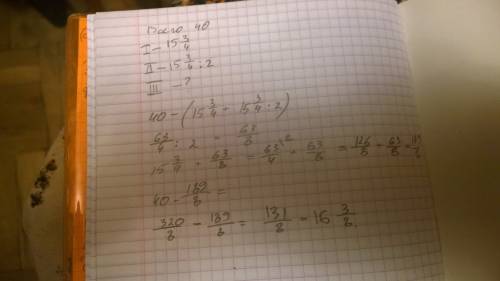 Всего 40
I – 15 3/4
II – 15 3/4 : 2
III – ?
40 – (15 3/4 + 15 3/4 : 2)
63/4 : 2 = 63/8
15 3/4 + 63/8 = 63/4 ·2 + 63/8 = 126/8 + 63/8 =
40 – 189/8 =
320/8 – 189/8 = 131/8 = 16 3/8